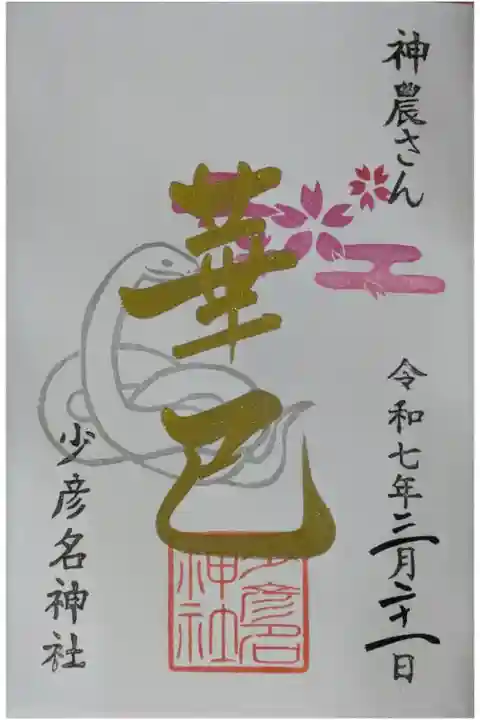 神農さん
令和七年三月二十一日
華
巳
少彦名神社
少彦名
神社